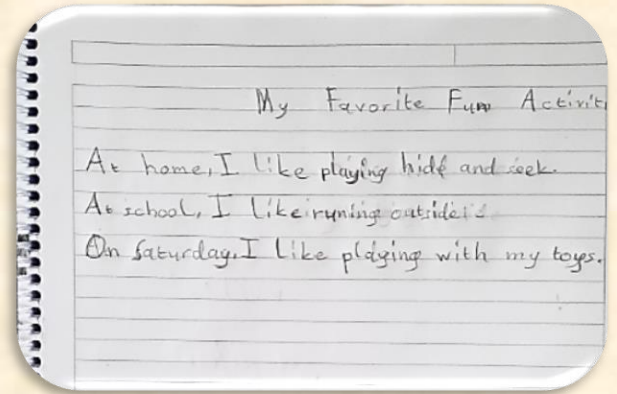 My Favorite Fun Activit
At home, I like playing hide and seek.
At school, I like runing outside
On Saturday, I like playing with my toys.